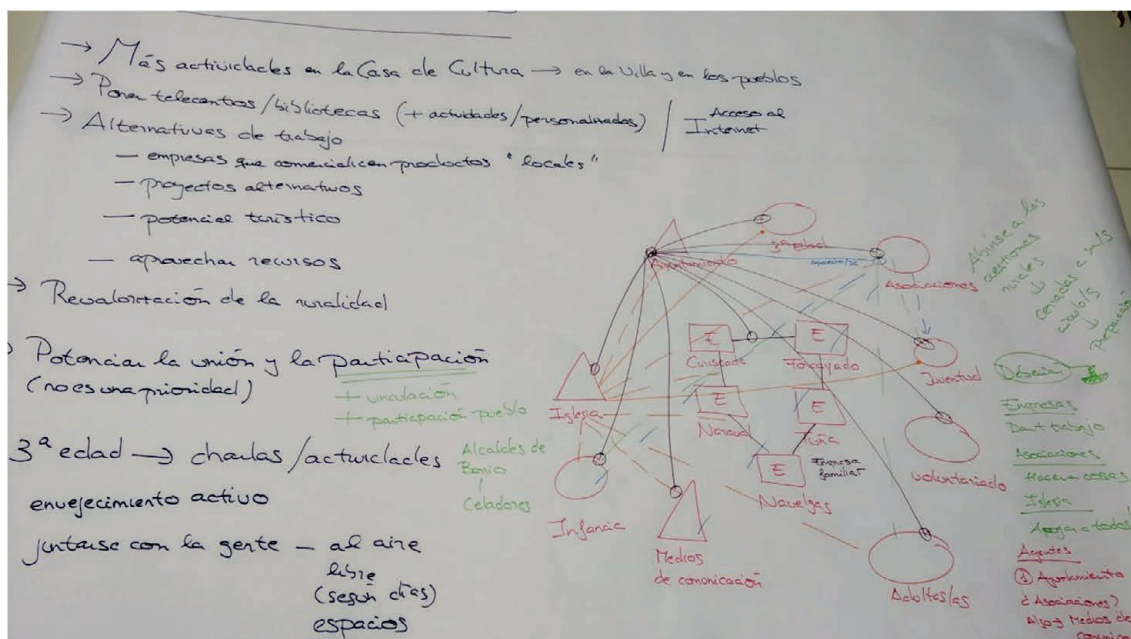 → Más actividades en la Casa de Cultura → en la Villa y en los pueblos
→ Poner telecentros/bibliotecas (+ actividades/personalizadas) / Acceso al Internet
→ Alternativas de trabajo
— empresas que comercialicen productos "locales"
— proyectos alternativos
— potencial turístico
— aprovechar recursos
→ Revalorización de la ruralidad
Potenciar la unión y la participación
(no es una prioridad)
+ vinculación
+ participación pueblo
3ª edad → charlas/actividades
envejecimiento activo
juntarse con la gente — al aire
libre
(según días)
espacios
Alcaldes de
Barrio
Celadores
Ayuntamiento
3ª edad
Asociaciones
E
Cuistada
E
Forcayado
Juventud
Iglesia
E
Naraval
E
Tuña
E
Navelgas
Empresa
familiar
Voluntariado
Infancia
Medios
de comunicación
Adultas/as
Abrirse a las
cuestiones
rurales
↓
Cerradas a su/s
círculo/s
↓
Preparación
Deberían
Empresas
Dar + trabajo
Asociaciones
Hacer + cosas
Iglesia
Apoyar a todos
Agentes
① Ayuntamiento
¿Asociaciones?
Algo → Medios de